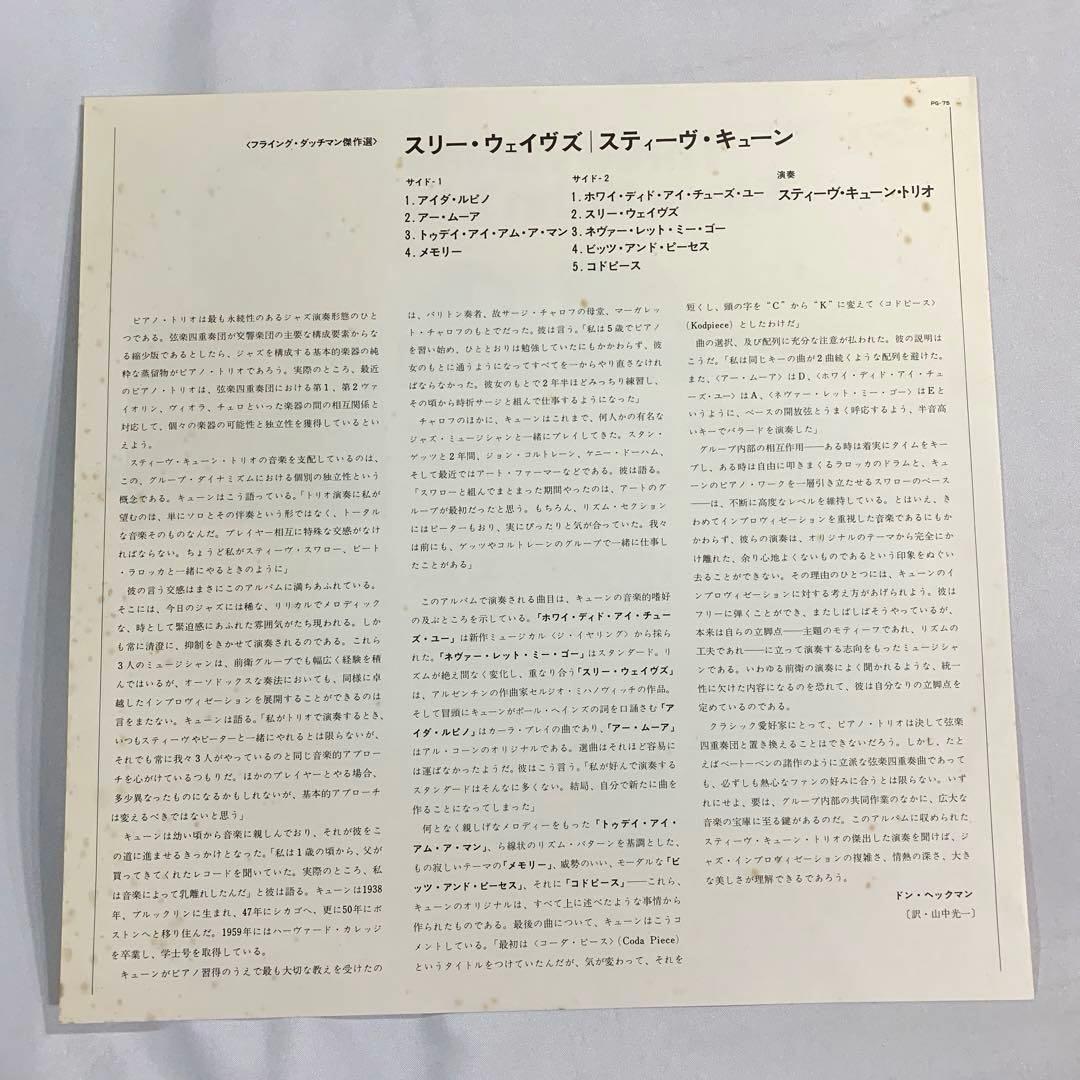 PG-75
〈フライング・ダッチマン傑作選〉
スリー・ウェイヴズ|スティーヴ・キューン
サイド-1
1.アイダ・ルピノ
2.アー・ムーア
3.トゥデイ・アイ・アム・ア・マン
4.メモリー
サイド-2
1.ホワイ・ディド・アイ・チューズ・ユー
2.スリー・ウェイヴズ
3.ネヴァー・レット・ミー・ゴー
4.ビッツ・アンド・ピーセス
5.コドピース
演奏
スティーヴ・キューン・トリオ
ピアノ・トリオは最も永続性のあるジャズ演奏形態のひと
つである。弦楽四重奏団が交響楽団の主要な構成要素からな
る縮少版であるとしたら、ジャズを構成する基本的楽器の純
粋な蒸留物がピアノ・トリオであろう。実際のところ、最近
のピアノ・トリオは、弦楽四重奏団における第1、第2ヴァ
イオリン、ヴィオラ、チェロといった楽器の間の相互関係と
対応して、個々の楽器の可能性と独立性を獲得しているとい
えよう。
スティーヴ・キューン・トリオの音楽を支配しているのは、
この、グループ・ダイナミズムにおける個別の独立性という
概念である。キューンはこう語っている。「トリオ演奏に私が
望むのは、単にソロとその伴奏という形ではなく、トータル
な音楽そのものなんだ。プレイヤー相互に特殊な交感がなけ
ればならない。ちょうど私がスティーヴ・スワロー、ピート
・ラロッカと一緒にやるときのように」
彼の言う交感はまさにこのアルバムに満ちあふれている。
そこには、今日のジャズには稀な、リリカルでメロディック
な、時として緊迫感にあふれた雰囲気がたち現われる。しか
も常に清澄に、抑制をきかせて演奏されるのである。これら
3人のミュージシャンは、前衛グループでも幅広く経験を積
んではいるが、オーソドックスな奏法においても、同様に卓
越したインプロヴィゼーションを展開することができるのは
言をまたない。キューンは語る。「私がトリオで演奏するとき、
いつもスティーヴやピーターと一緒にやれるとは限らないが、
それでも常に我々3人がやっているのと同じ音楽的アプロー
チを心がけているつもりだ。ほかのプレイヤーとやる場合、
多少異なったものになるかもしれないが、基本的アプローチ
は変えるべきではないと思う」
キューンは幼い頃から音楽に親しんでおり、それが彼をこ
の道に進ませるきっかけとなった。「私は1歳の頃から、父が
買ってきてくれたレコードを聞いていた。実際のところ、私
は音楽によって乳離れしたんだ」と彼は語る。キューンは1938
年、ブルックリンに生まれ、47年にシカゴへ、更に50年にボ
ストンへと移り住んだ。1959年にはハーヴァード・カレッジ
を卒業し、学士号を取得している。
キューンがピアノ習得のうえで最も大切な教えを受けたの
は、バリトン奏者、故サージ・チャロフの母堂、マーガレッ
ト・チャロフのもとでだった。彼は言う。「私は5歳でピアノ
を習い始め、ひととおりは勉強していたにもかかわらず、彼
女のもとに通うようになってすべてを一からやり直さなけれ
ばならなかった。彼女のもとで2年半ほどみっちり練習し、
その頃から時折サージと組んで仕事するようになった」
チャロフのほかに、キューンはこれまで、何人かの有名な
ジャズ・ミュージシャンと一緒にプレイしてきた。スタン・
ゲッツと2年間、ジョン・コルトレーン、ケニー・ドーハム、
そして最近ではアート・ファーマーなどである。彼は語る。
「スワローと組んでまとまった期間やったのは、アートのグ
ループが最初だったと思う。もちろん、リズム・セクション
にはピーターもおり、実にぴったりと気が合っていた。我々
は前にも、ゲッツやコルトレーンのグループで一緒に仕事し
たことがある」
このアルバムで演奏される曲目は、キューンの音楽的嗜好
の及ぶところを示している。「ホワイ・ディド・アイ・チュー
ズ・ユー」は新作ミュージカル〈ジ・イヤリング〉から採ら
れた。「ネヴァー・レット・ミー・ゴー」はスタンダード。リ
ズムが絶え間なく変化し、重なり合う「スリー・ウェイヴズ」
は、アルゼンチンの作曲家セルジオ・ミハノヴィッチの作品。
そして冒頭にキューンがポール・ヘインズの詞を口誦さむ「ア
イダ・ルピノ」はカーラ・ブレイの曲であり、「アー・ムーア」
はアル・コーンのオリジナルである。選曲はそれほど容易に
は運ばなかったようだ。彼はこう言う。「私が好んで演奏する
スタンダードはそんなに多くない。結局、自分で新たに曲を
作ることになってしまった」
何となく親しげなメロディーをもった「トゥデイ・アイ・
アム・ア・マン」、ら線状のリズム・パターンを基調とした、
もの寂しいテーマの「メモリー」、威勢のいい、モーダルな「ビ
ッツ・アンド・ピーセス」、それに「コドピース」――これら、
キューンのオリジナルは、すべて上に述べたような事情から
作られたものである。最後の曲について、キューンはこうコ
メントしている。「最初は〈コーダ・ピース〉(Coda Piece)
というタイトルをつけていたんだが、気が変わって、それを
短くし、頭の字を“C”から“K”に変えて〈コドピース〉
(Kodpiece)としたわけだ」
曲の選択、及び配列に充分な注意が払われた。彼の説明は
こうだ。「私は同じキーの曲が2曲続くような配列を避けた。
また、〈アー・ムーア〉はD、〈ホワイ・ディド・アイ・チュ
ーズ・ユー〉はA、〈ネヴァー・レット・ミー・ゴー〉はEと
いうように、ベースの開放弦とうまく呼応するよう、半音高
いキーでバラードを演奏した」
グループ内部の相互作用――ある時は着実にタイムをキー
プし、ある時は自由に叩きまくるラロッカのドラムと、キュ
ーンのピアノ・ワークを一層引き立たせるスワローのベース
――は、不断に高度なレベルを維持している。とはいえ、き
わめてインプロヴィゼーションを重視した音楽であるにもか
かわらず、彼らの演奏は、オリジナルのテーマから完全にか
け離れた、余り心地よくないものであるという印象をぬぐい
去ることができない。その理由のひとつには、キューンのイ
ンプロヴィゼーションに対する考え方があげられよう。彼は
フリーに弾くことができ、またしばしばそうやっているが、
本来は自らの立脚点――主題のモティーフであれ、リズムの
工夫であれ――に立って演奏する志向をもったミュージシャ
ンである。いわゆる前衛の演奏によく聞かれるような、統一
性に欠けた内容になるのを恐れて、彼は自分なりの立脚点を
定めているのである。
クラシック愛好家にとって、ピアノ・トリオは決して弦楽
四重奏団と置き換えることはできないだろう。しかし、たと
えばベートーベンの諸作のように立派な弦楽四重奏曲であって
も、必ずしも熱心なファンの好みに合うとは限らない。いず
れにせよ、要は、グループ内部の共同作業のなかに、広大な
音楽の宝庫に至る鍵があるのだ。このアルバムに収められた
スティーヴ・キューン・トリオの傑出した演奏を聞けば、ジ
ャズ・インプロヴィゼーションの複雑さ、情熱の深さ、大き
な美しさが理解できるであろう。
ドン・ヘックマン
〔訳・山中光一〕